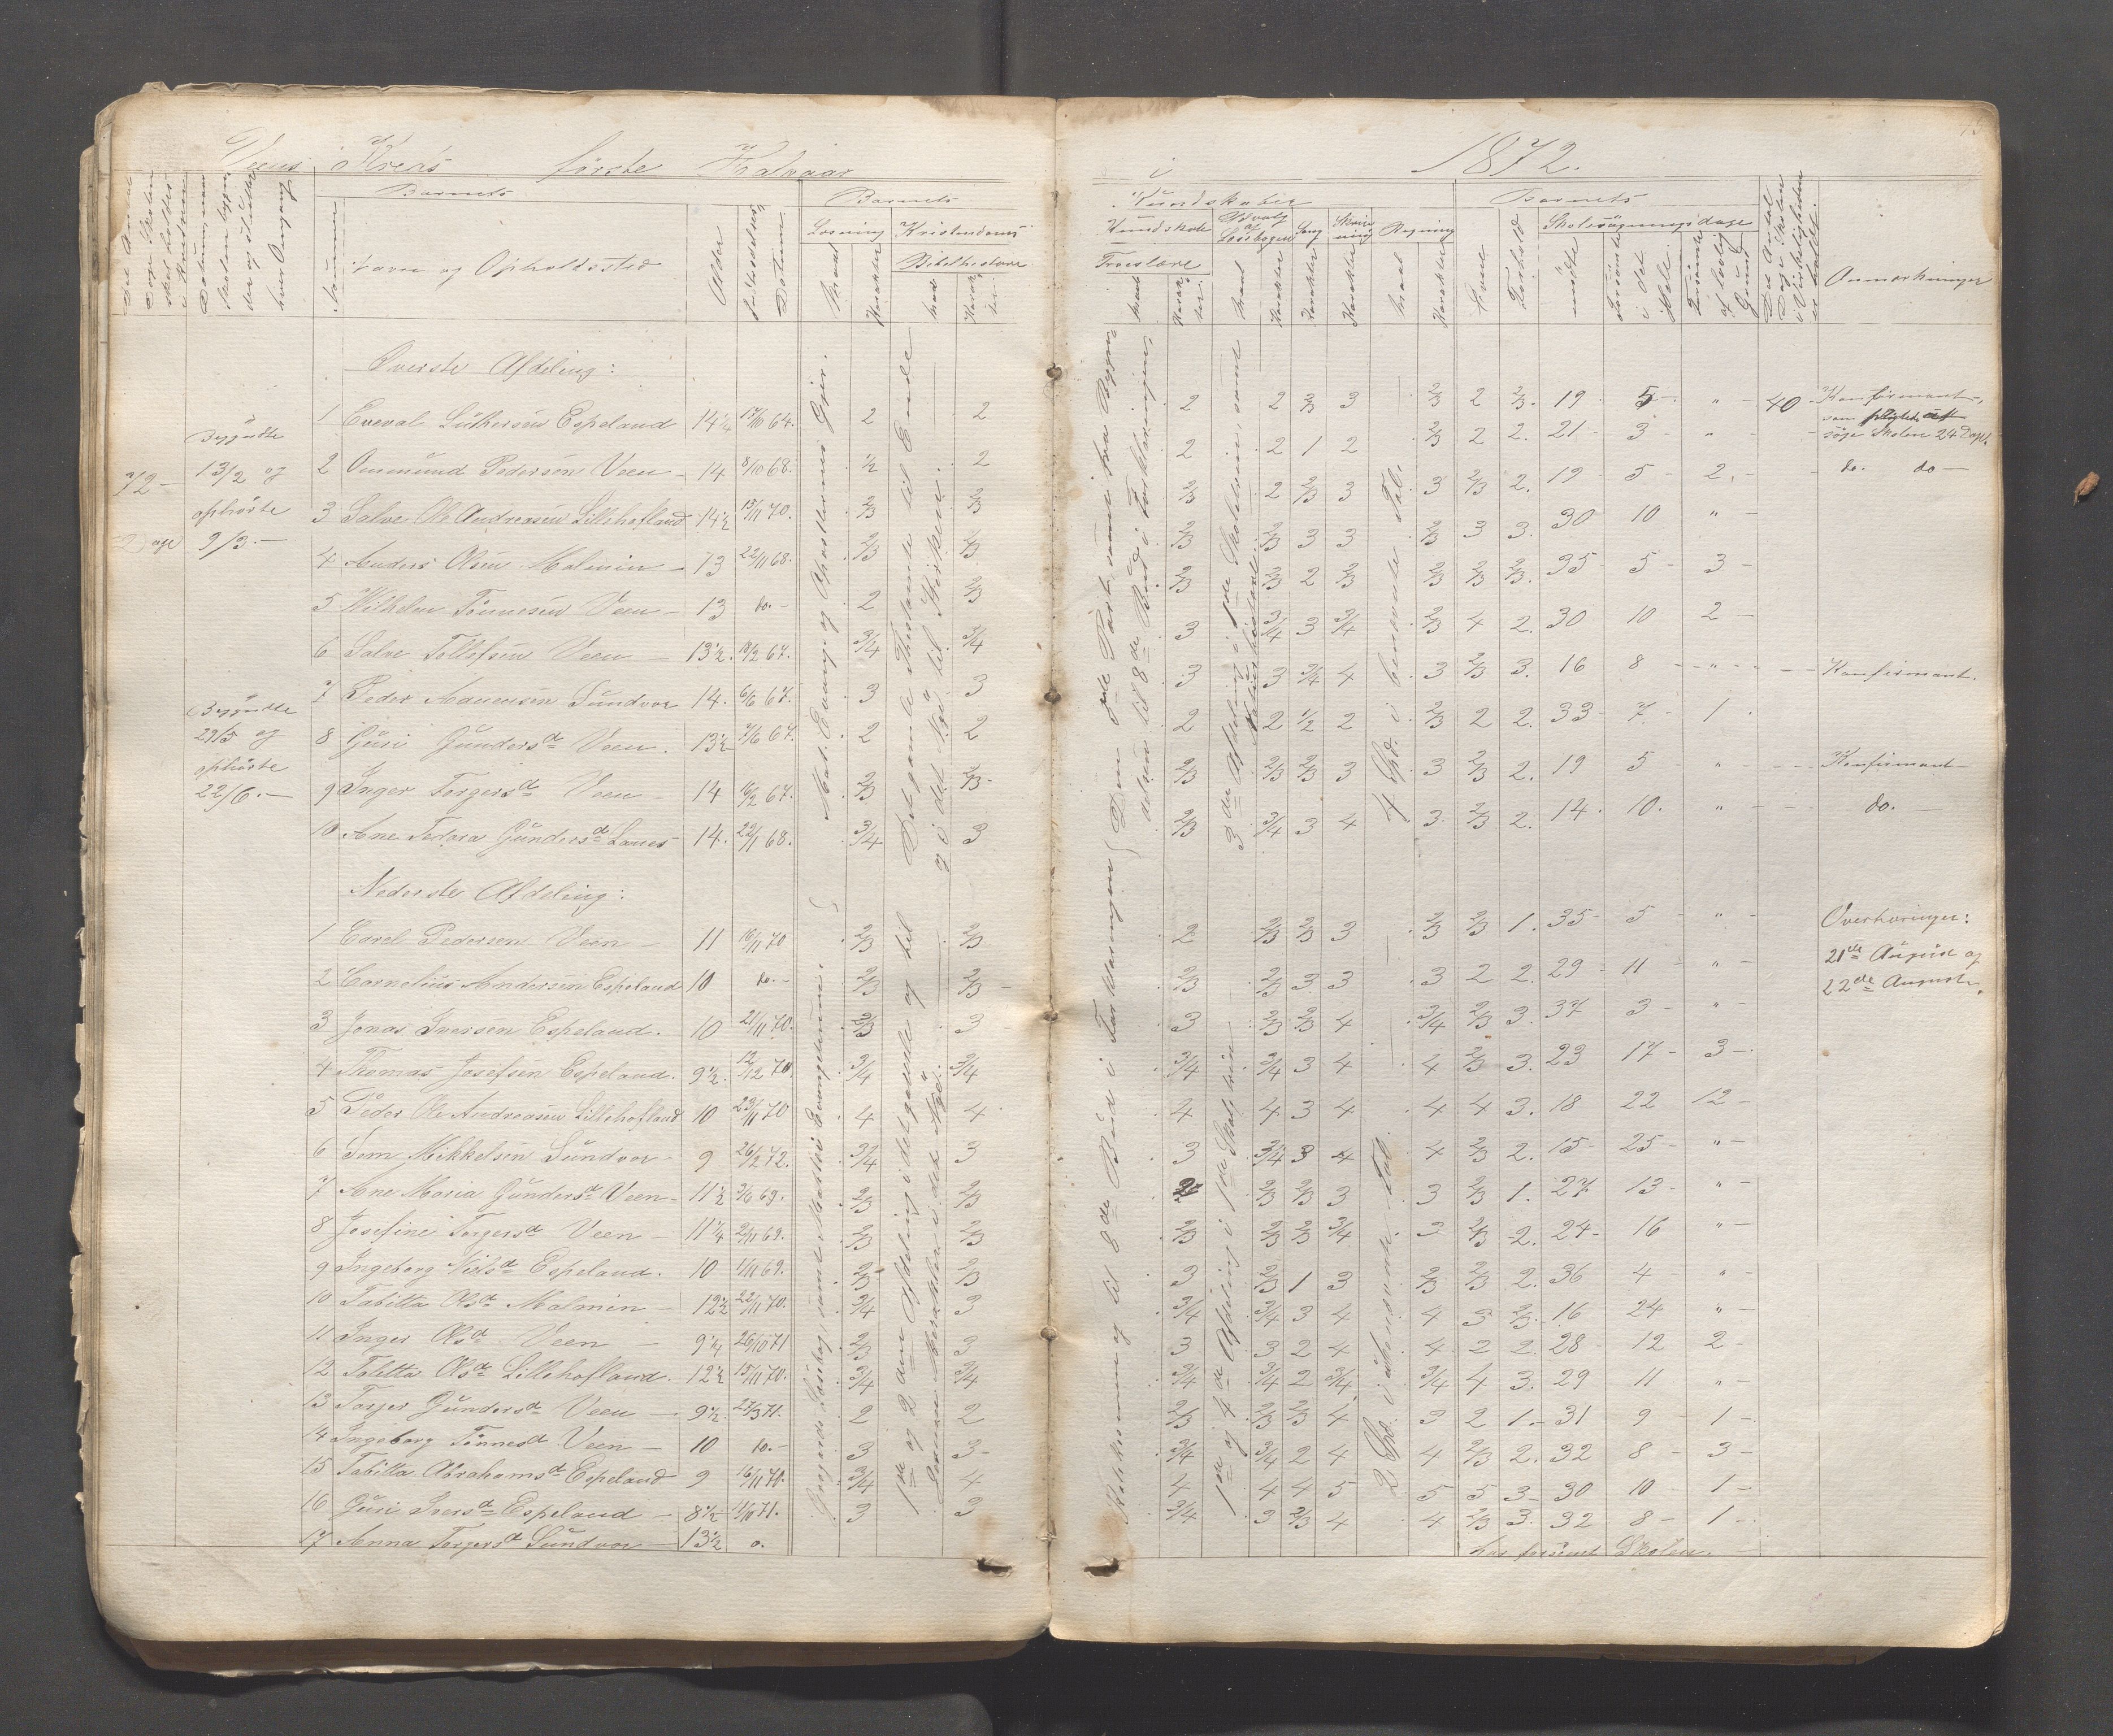 Veens Kreds første Halvaar i 1872.
Barnets
Barnets
Kundskaber
Barnets
Læsning
Kristendoms
Kundskab
Udvalg af Læsebogen
Sang
Skriv-
ning
Regning
Skolesøgningsdage
Bibelhistorie
Troeslære
Nummer
Navn og Opholdssted
Alder
Indtrædelses
Datum
Maal
Karakter
Maal
Karak-
ter
Maal
Karak-
ter
Maal
Karakter
Karakter
Karakter
Maal
Karakter
Evne
Forhold
mødte
forsømte
i det
Hele
forsømte
af lovlig
Grund
Det Antal
Dage Skolen
i Virkeligheden
er holdt
Anmærkninger
Øverste Afdeling:
Begyndte
13/2 og
ophørte
9/3. —
72 —
Dage
Begyndte
29/5 og
ophørte
22/6. —
1 Enevald Luthersen Espeland 14¼ 17/10 64. 2 2 2 2 2/3 3 2/3 2 2/3. 19 5 " 40 Konfirmant,
søge Skolen 24 Dage.
2 Ommund Pedersen Veen 14 8/10 68. ½ 2 2 2 1 2 2/3 2 2. 21 3 " do. do —
3 Salve Ole Andreasen Lillehofland 14½ 15/11 70. 2/3 2/3 2/3 2 2/3 3 3 2/3 2. 19 5 2.
4 Anders Olsen Malmin 13 22/11 68. 2/3 2/3 2/3 2/3 3 3 2/3 3 3. 30 10 "
5 Vilhelm Tønnesen Veen 13 do. 2 2/3 2/3 2/3 2 2/3 2/3 2/3 2/3. 35 5 3
6 Salve Tollefsen Veen 13½. 10/2 67. 3/4 3/4 3 3/4 3 3/4 2/3 4 2. 30 10 2
7 Peder Maurensen Sundvor 14. 6/6 67. 3 3 3 3 3/4 4 3 2/3 3. 16 8 " Konfirmant.
8 Guri Gundersd. Veen. 13½ 7/6 67. 2 2 2 2 ½ 2 2/3 2 2. 33 7 1
9 Inger Torgersd. Veen 14 16/2 67. 2/3 2/3 2/3 2/3 2/3 3 3 2/3 2. 19 5 " Konfirmant
10 Ane Tedora Gundersd. Lanes 14. 22/1 68. 3/4 3 2/3 3/4 3 4 3. 2/3 2. 14 10. " do.
Nederste Afdeling:
1 Carel Pedersen Veen 11 16/11 70 2/3 2/3 2 2/3 2/3 3 2/3 2/3 1. 35 5 " Overhøringer:
21de August og
22de August.
2 Cornelius Andersen Espeland 10 do. 2/3 2/3 2/3 2/3 3 3 3 2 2. 29 11 "
3 Jonas Iversen Espeland. 10 21/11 70. 2/3 3 3 2/3 2/3 4 3/4 2/3 3. 37 3 "
4 Thomas Josefsen Espeland. 9½. 12/12 70. 3/4 3/4 3/4 3/4 3 4 4 2/3 3. 23 17 3
5 Peder Ole Andreasen Lillehofland 10 23/11 70 4 4 4 4 3 4 4 4 3. 18 22 12
6 Tom Mikkelsen Sundvor 9 26/2 72. 3/4 3 3 3/4 3 4 4 2/3 2. 15 25 "
7 Ane Maria Gundersd. Veen 11½ 3/6 69. 2/3 2/3 2 2/3 2/3 3 3 2/3 1. 27 13 "
8 Josefine Torgersd. Veen 11¼ 2/11 69. 2/3 2/3 2/3 2/3 2/3 3/4 3 2/3 2. 24 16 "
9 Ingeborg Nielsd. Espeland. 10 1/11 69. 2/3 2/3 3 2/3 1 3 2/3 2/3 2. 36 4 "
10 Tabitta Olsd. Malmin 12½ 22/11 70. 3/4 3 3/4 3/4 3 4 4 3 2/3. 16 24 "
11 Inger Olsd. Veen 9¼ 26/10 71 2/3 3 3 3 2 4 4 2 2. 28 12 2
12 Talette Olsd. Lillehofland. 12½ 15/11 70. 3/4 3/4 3/4 3/4 2 3/4 3/4 4 3. 29 11 "
13 Torjer Gundersd. Veen 9½. 27/3 71. 2 2 2/3 2/3 2/3 4 3 2 1. 31 9 1
14 Ingeborg Tønnesd. Veen 10 do. 3 3 3/4 3/4 2 4 4 2/3 2. 32 8 3
15 Tabitta Abrahamsd. Espeland 9 16/11 70. 3/4 4 4 4 4 5 5 5 3 30 10 1
16 Guri Iversd. Espeland 8½ 1/10 71. 3 3 3/4 3 2/3 4 4 2/3 3. 32 8 1
17 Anna Torgersd. Sundvor 13½ 0. har forsømt Skolen.
Det gamle Thestamente til Ende
4 Spd. i benævnte Tal.